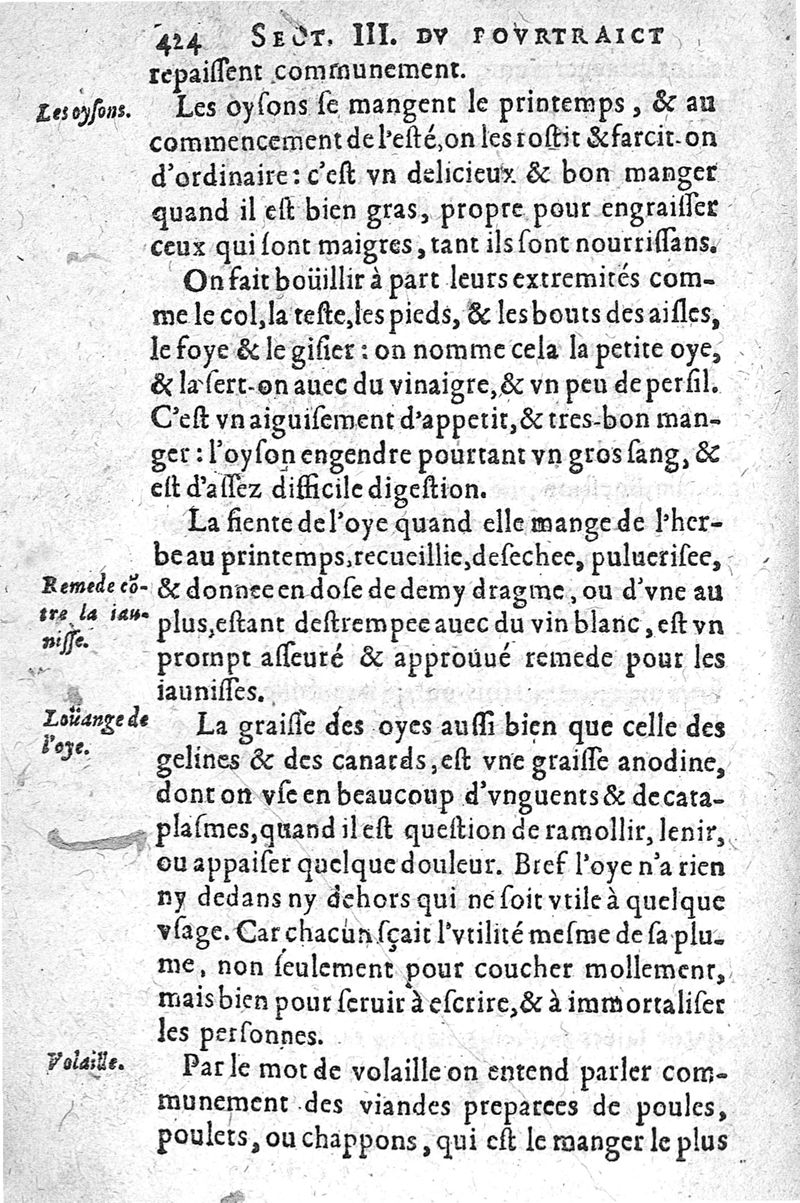 424 SECT. III. DV POVRTRAICT
repaiſſent communement.
Les oyſons.
Les oyſons ſe mangent le printemps, & au
commencement de l'eſté, on les roſtit & farcit-on
d'ordinaire: c'eſt vn delicieux & bon manger
quand il eſt bien gras, propre pour engraiſſer
ceux qui ſont maigres, tant ils ſont nourriſſans.
On fait boüillir à part leurs extremités com-
me le col, la teſte, les pieds, & les bouts des aiſles,
le foye & le giſier: on nomme cela la petite oye,
& la ſert-on auec du vinaigre, & vn peu de perſil.
C'eſt vn aiguiſement d'appetit, & tres-bon man-
ger: l'oyſon engendre pourtant vn gros ſang, &
eſt d'aſſez difficile digeſtion.
La fiente de l'oye quand elle mange de l'her-
be au printemps, recueillie, deſechee, puluerisee,
Remede cõ-
tre la iau-
niſſe.
& donnee en doſe de demy dragme, ou d'vne au
plus, eſtant deſtrempee auec du vin blanc, eſt vn
prompt aſſeuré & approuué remede pour les
iauniſſes.
Loüange de
l'oye.
La graiſſe des oyes auſſi bien que celle des
gelines & des canards, eſt vne graiſſe anodine,
dont on vſe en beaucoup d'vnguents & de cata-
plaſmes, quand il eſt queſtion de ramollir, lenir,
ou appaiſer quelque douleur. Bref l'oye n'a rien
ny dedans ny dehors qui ne ſoit vtile à quelque
vſage. Car chacun ſçait l'vtilité meſme de ſa plu-
me, non ſeulement pour coucher mollement,
mais bien pour ſeruir à eſcrire, & à immortaliſer
les perſonnes.
Volaille.
Par le mot de volaille on entend parler com-
munement des viandes preparees de poules,
poulets, ou chappons, qui eſt le manger le plus